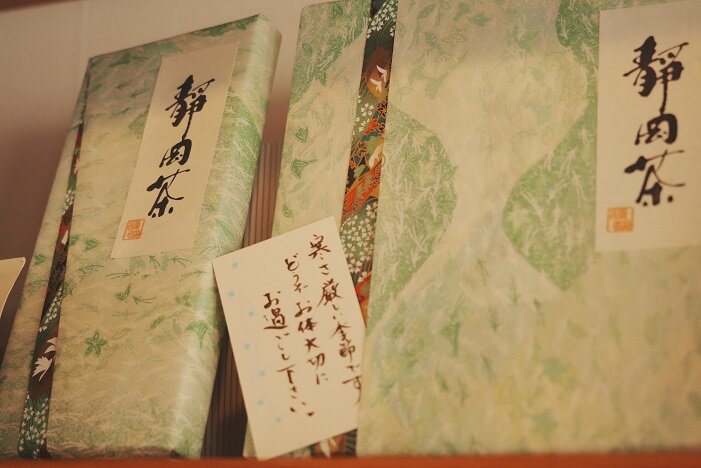 静岡茶
寒さ厳しい季節です
どうぞお体大切に
お過ごし下さい
静岡茶